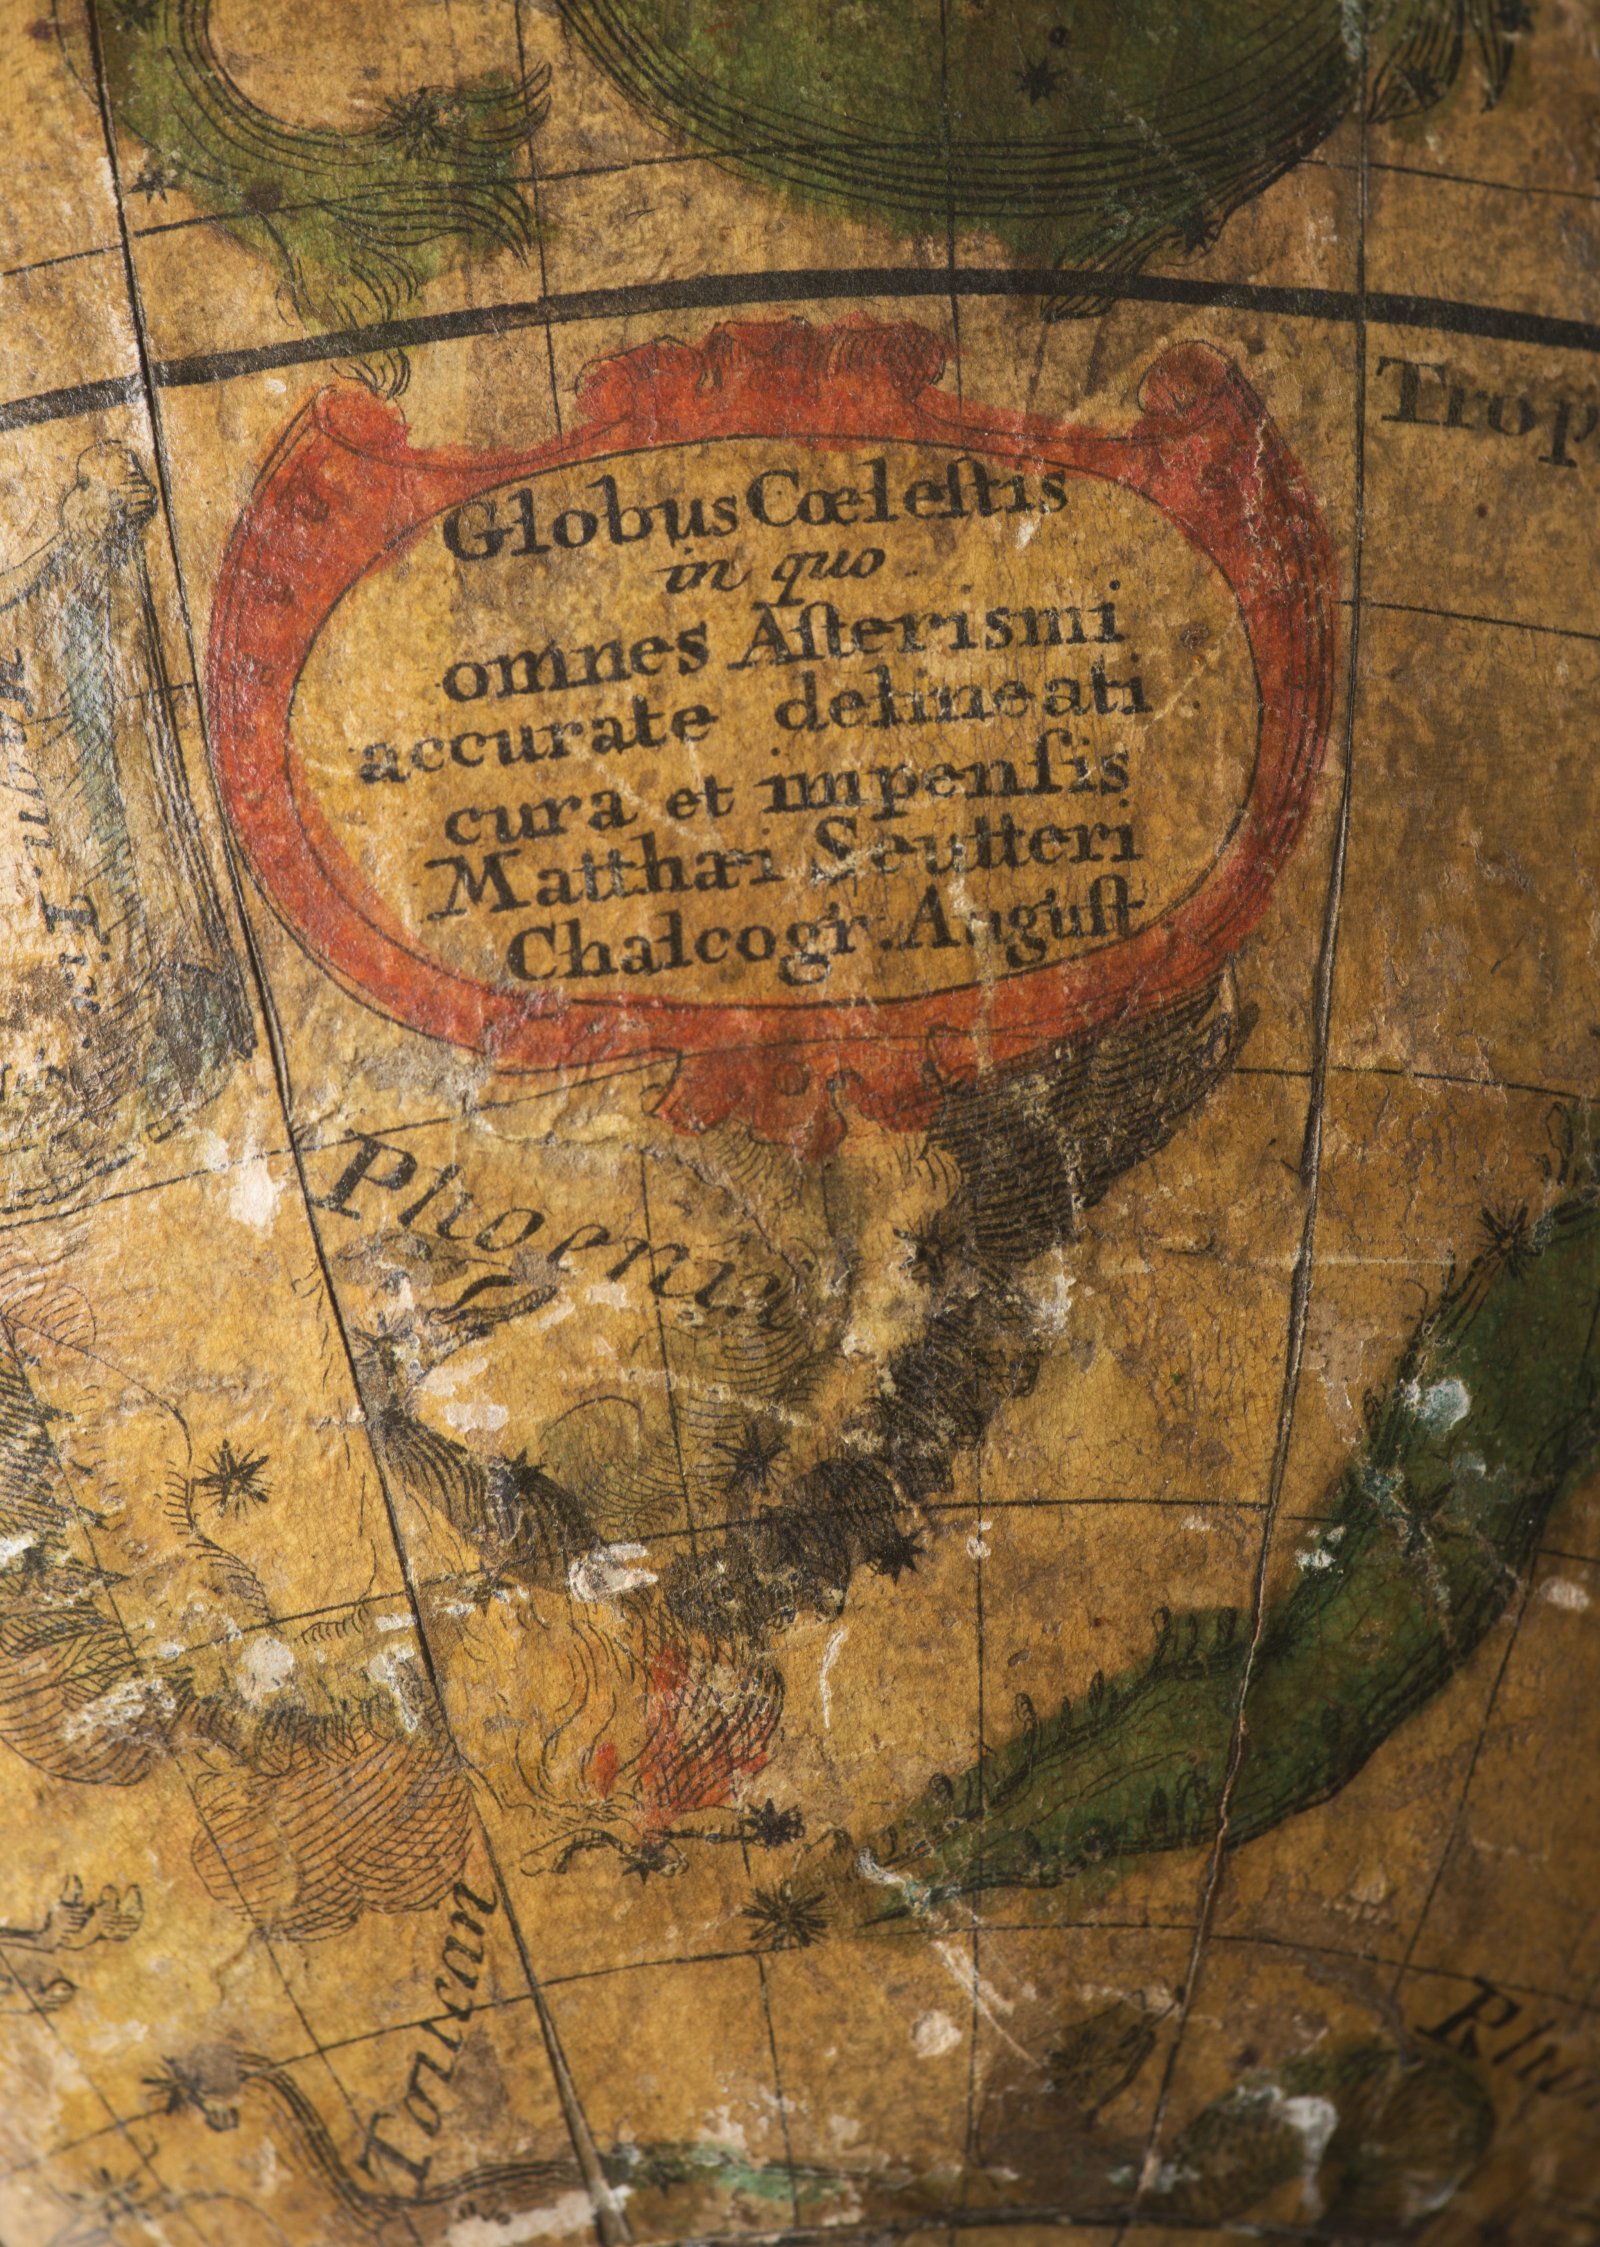 Trop
Globus Cœleſtis
in quo
omnes Aſterismi
accurate delineati
cura et impenſis
Matthæi Seutteri
Chalcogr. Auguſt
Phoenix
Toucan